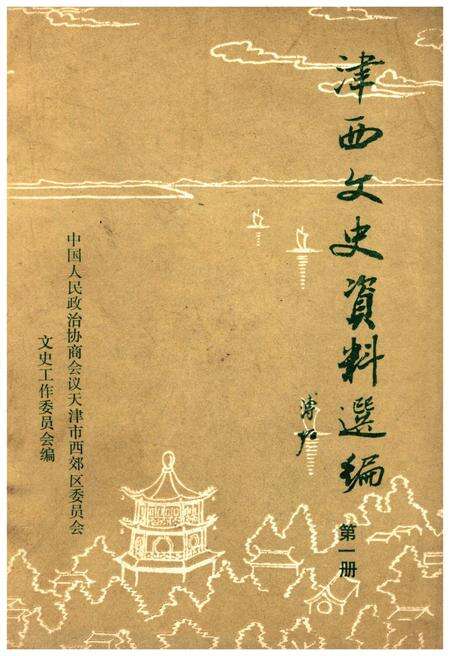 津西文史資料選編
第一册
中国人民政治协商会议天津市西郊区委员会
文史工作委员会编